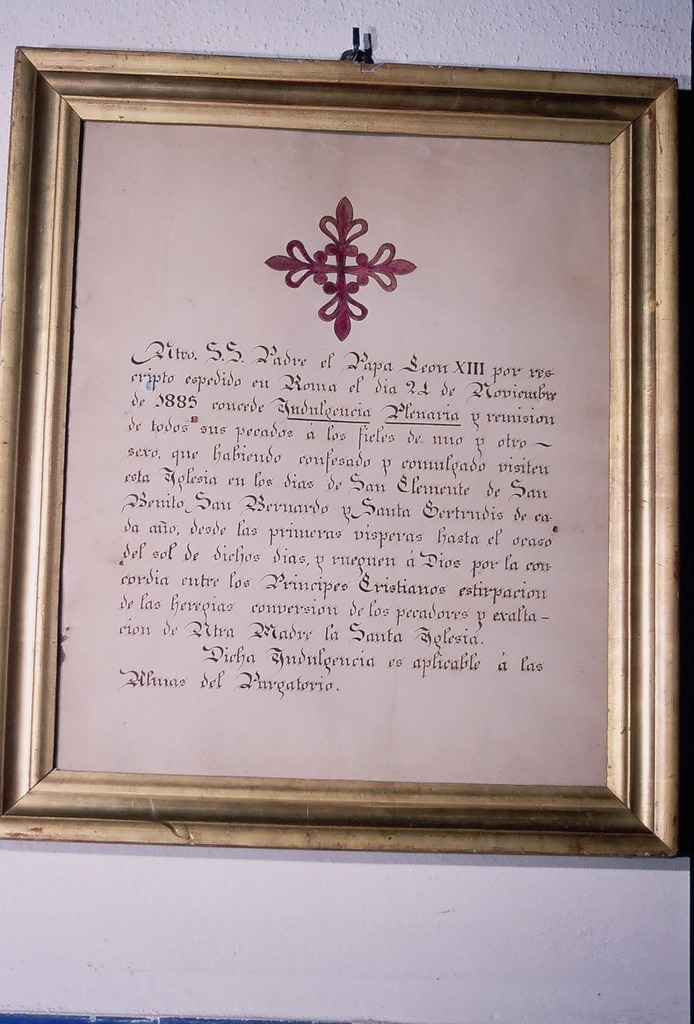 Ntro. S.S. Padre el Papa Leon XIII por res-
cripto espedido en Roma el dia 24 de Noviembre
de 1885 concede Indulgencia Plenaria y remision
de todos sus pecados á los fieles de uno y otro
sexo, que habiendo confesado y comulgado visiten
esta Iglesia en los dias de San Clemente de San
Benito, San Bernardo y Santa Gertrudis de ca-
da año, desde las primeras visperas hasta el ocaso
del sol de dichos dias, y rueguen á Dios por la con-
cordia entre los Principes Cristianos estirpacion
de las heregias conversion de los pecadores y exalta-
cion de Ntra Madre la Santa Iglesia.
Dicha Indulgencia es aplicable á las
Almas del Purgatorio.